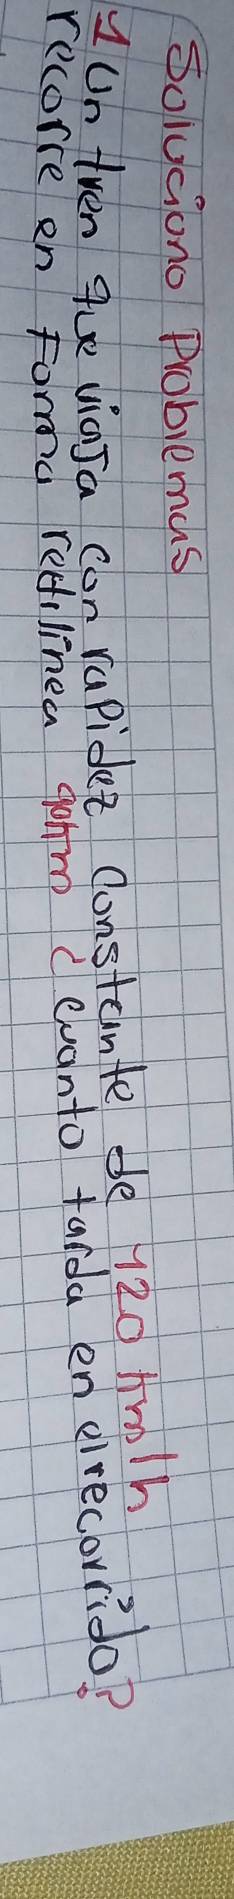 Soluciono Problemas
1 Un tren que viaja con rapidez constante de 120 km/h
recorre en Forma rectilínea ¿ cuanto tarda en el recorrido?